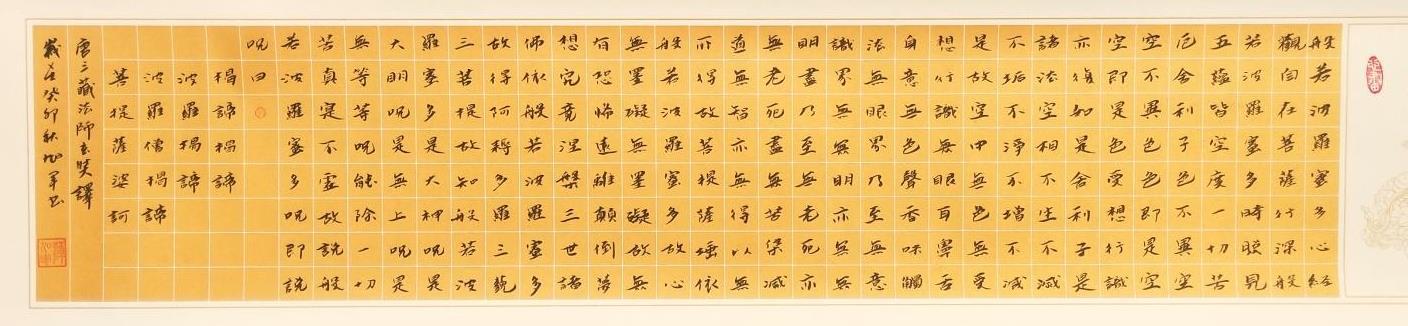 般若波羅蜜多心經
觀自在菩薩行深般
若波羅蜜多時照見
五蘊皆空度一切苦
厄舍利子色不異空
空不異色色即是空
空即是色受想行識
亦復如是舍利子是
諸法空相不生不滅
不垢不淨不增不減
是故空中無色無受
想行識無眼耳鼻舌
身意無色聲香味觸
法無眼界乃至無意
識界無無明亦無無
明盡乃至無老死亦
無老死盡無苦集滅
道無智亦無得以無
所得故菩提薩埵依
般若波羅蜜多故心
無罣礙無罣礙故無
有恐怖遠離顛倒夢
想究竟涅槃三世諸
佛依般若波羅蜜多
故得阿耨多羅三藐
三菩提故知般若波
羅蜜多是大神呪是
大明呪是無上呪是
無等等呪能除一切
苦真實不虛故說般
若波羅蜜多呪即說
呪曰
揭諦揭諦
波羅揭諦
波羅僧揭諦
菩提薩婆訶
唐三藏法師玄奘譯
歲在癸卯秋軍書